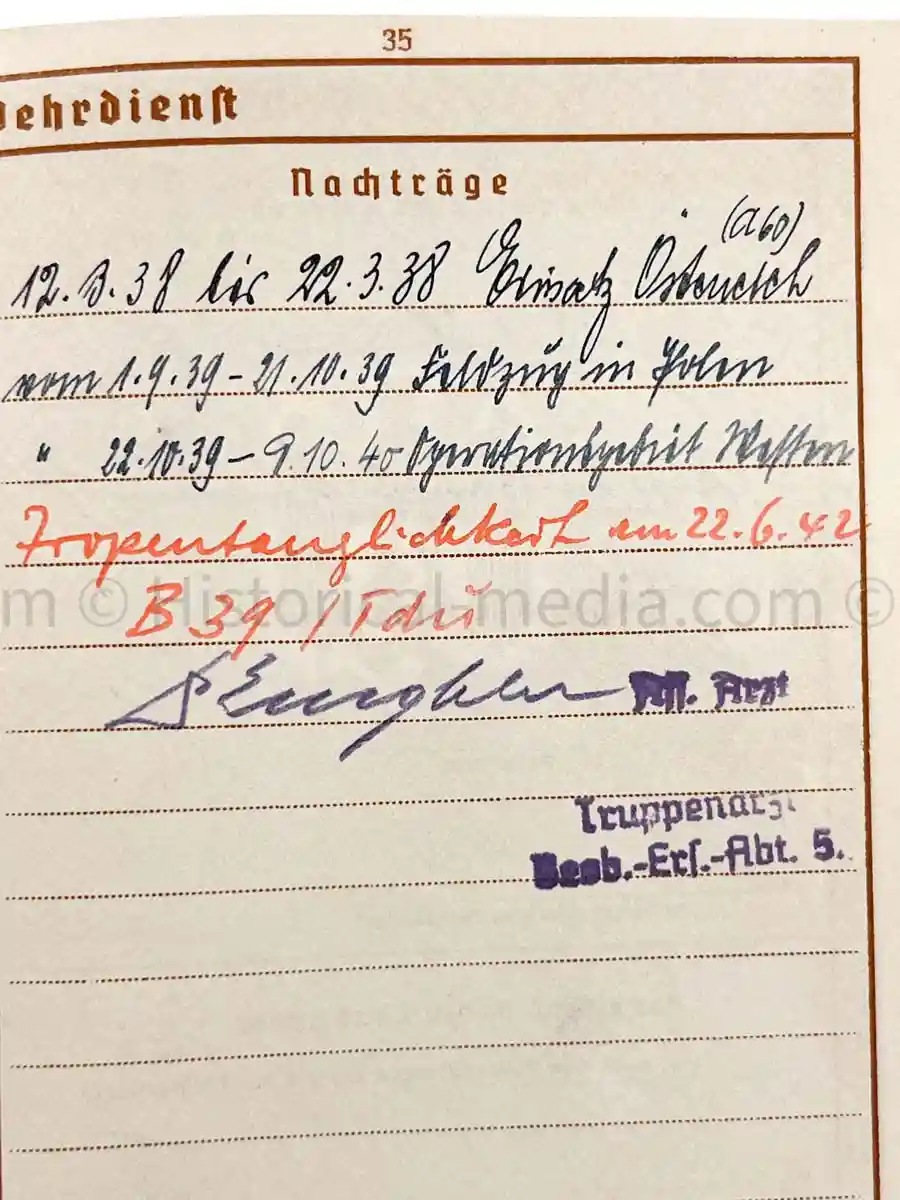 35
Wehrdienst
Nachträge
(A60)
12.3.38 bis 22.3.38 Einsatz Österreich
vom 1.9.39 - 21.10.39 Feldzug in Polen
" 22.10.39 - 9.10.40 Operationsgebiet Westen
Tropentauglichkeit am 22.6.42
m © Historical-media.com ©
B 39 / Tdu
Aſſ. Arzt
Truppenarzt
Beob.-Erſ.-Abt. 5.